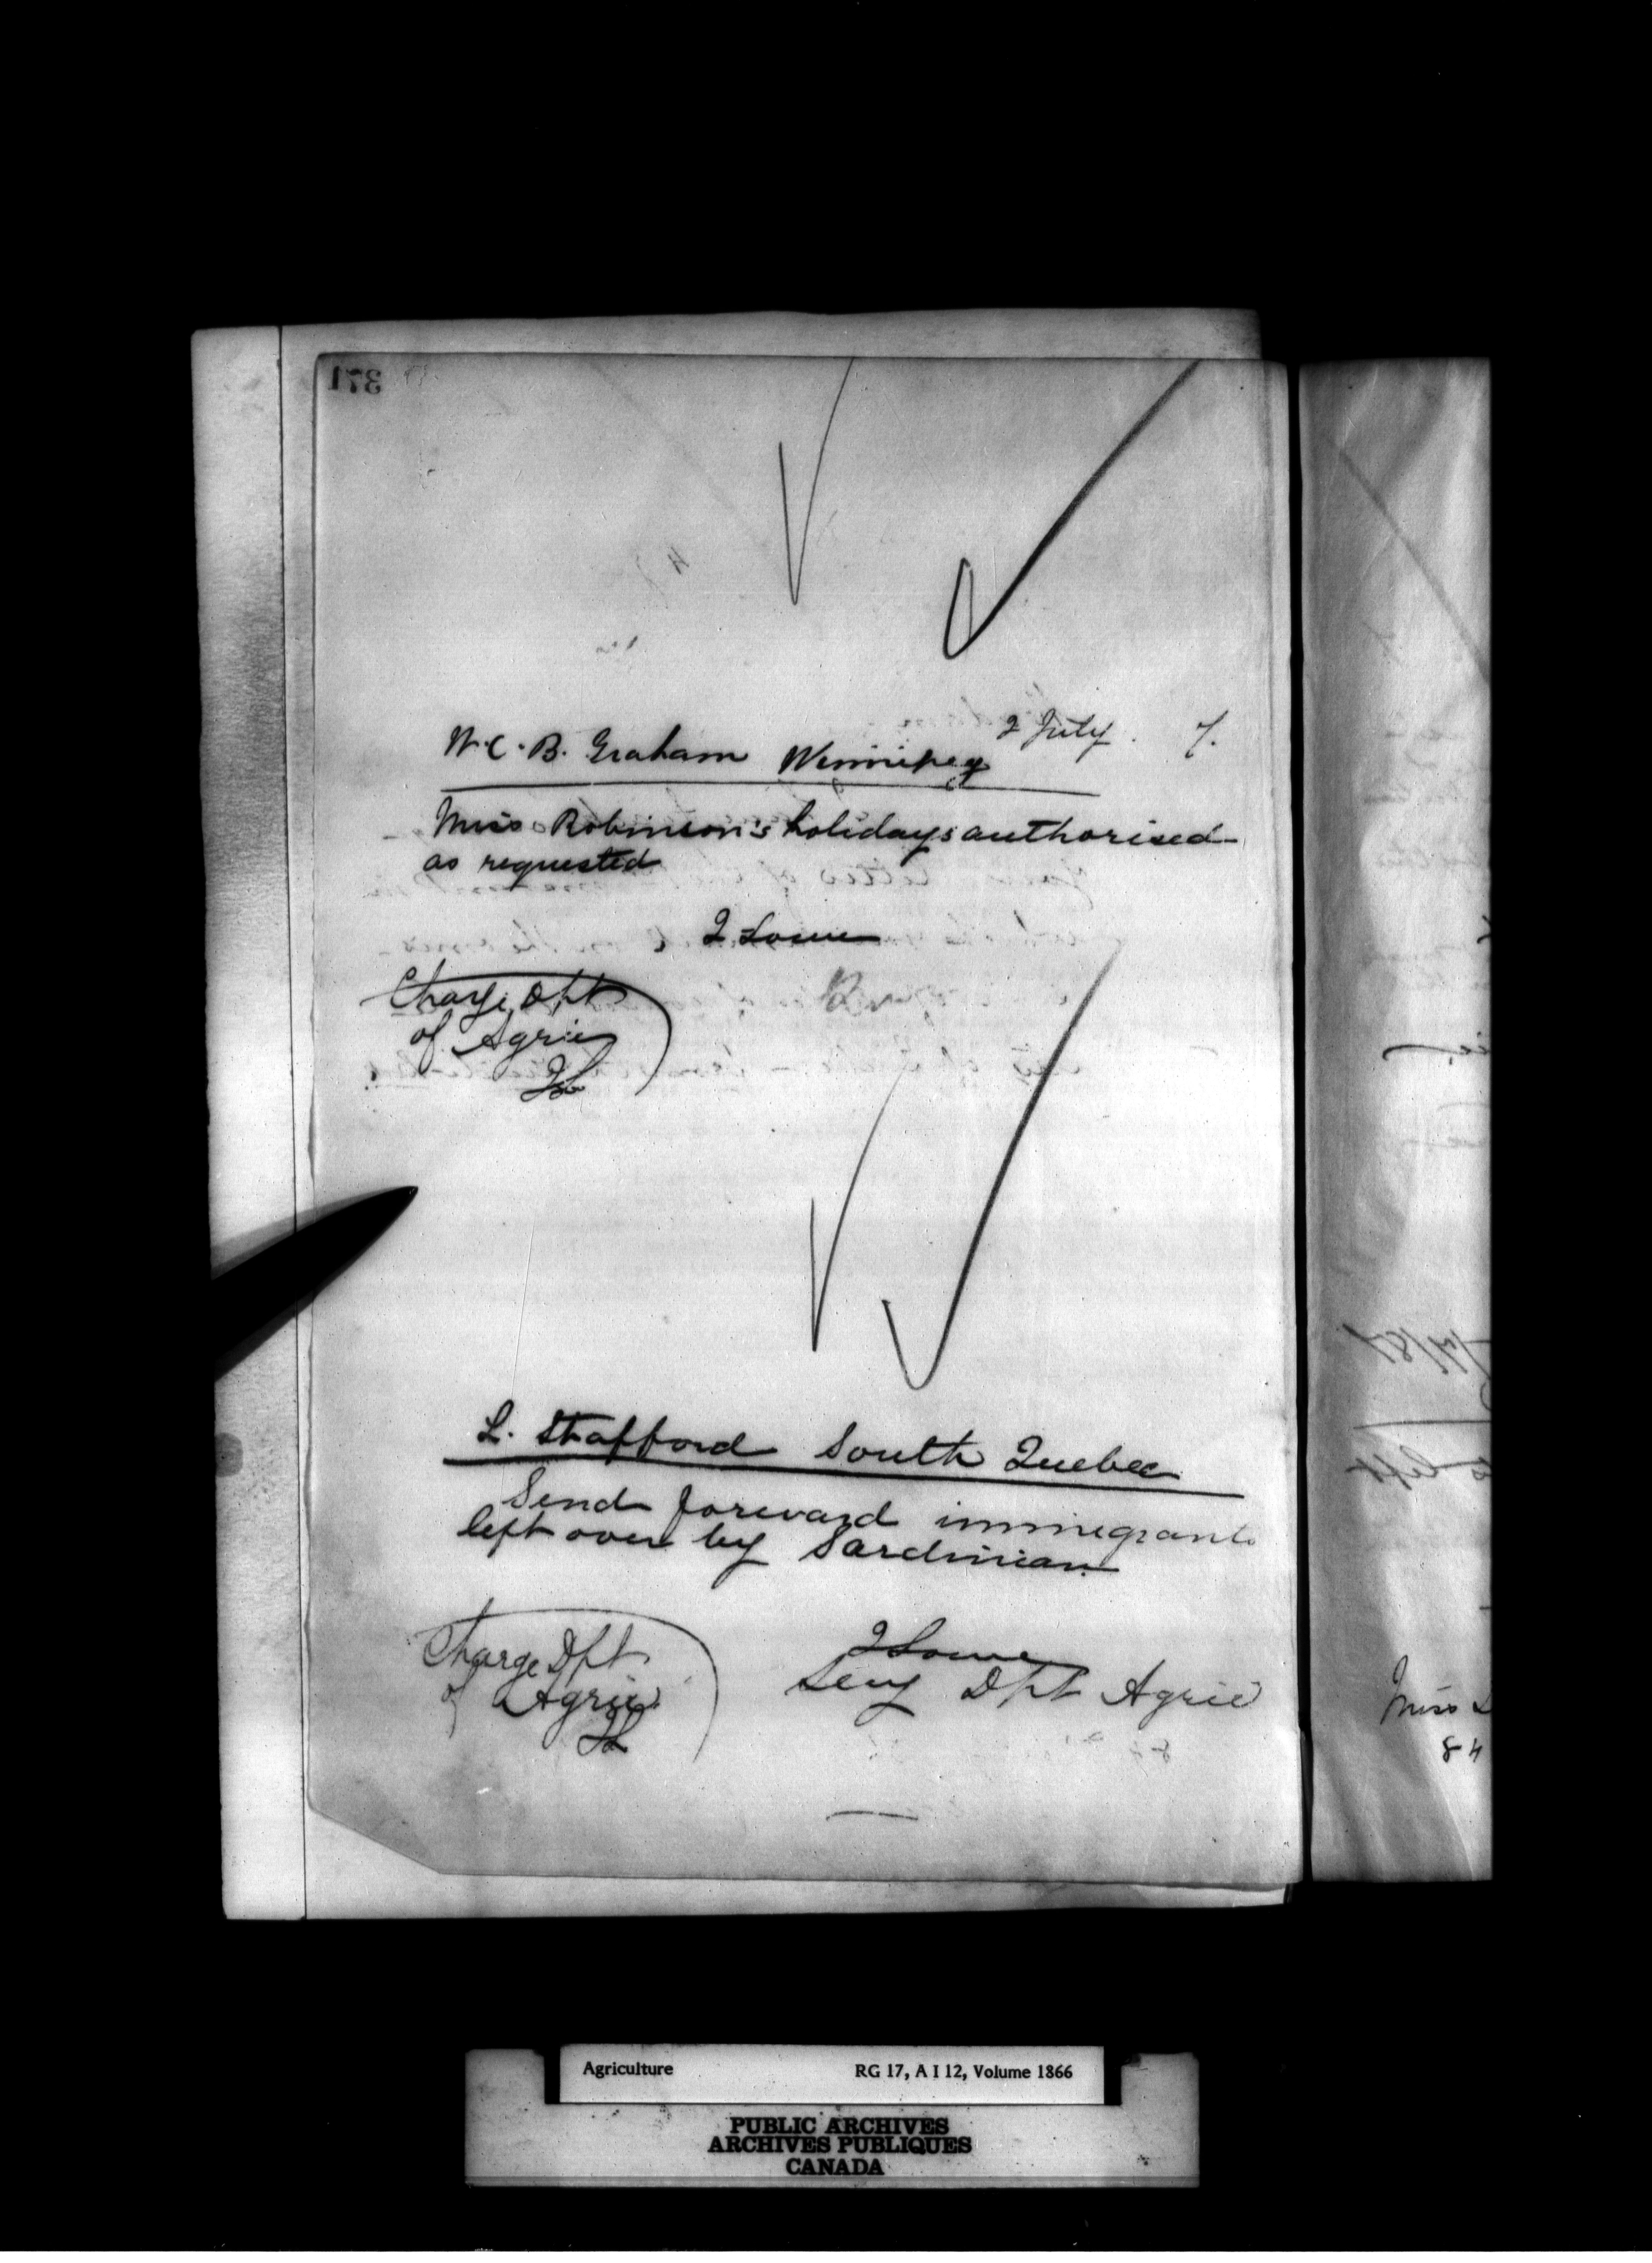 371
2 July. 7.
W. C. B. Graham Winnipeg
Miss Robinson's holidays authorised
as requested
J Lowe
Charge Dpt
of Agric
JL
L. Stafford South Quebec
Send forward immigrants
left over by Sardinian
Charge Dpt
of Agric
JL
J Lowe
Secy Dpt Agric
Miss
84
Agriculture RG 17, A I 12, Volume 1866
PUBLIC ARCHIVES
ARCHIVES PUBLIQUES
CANADA